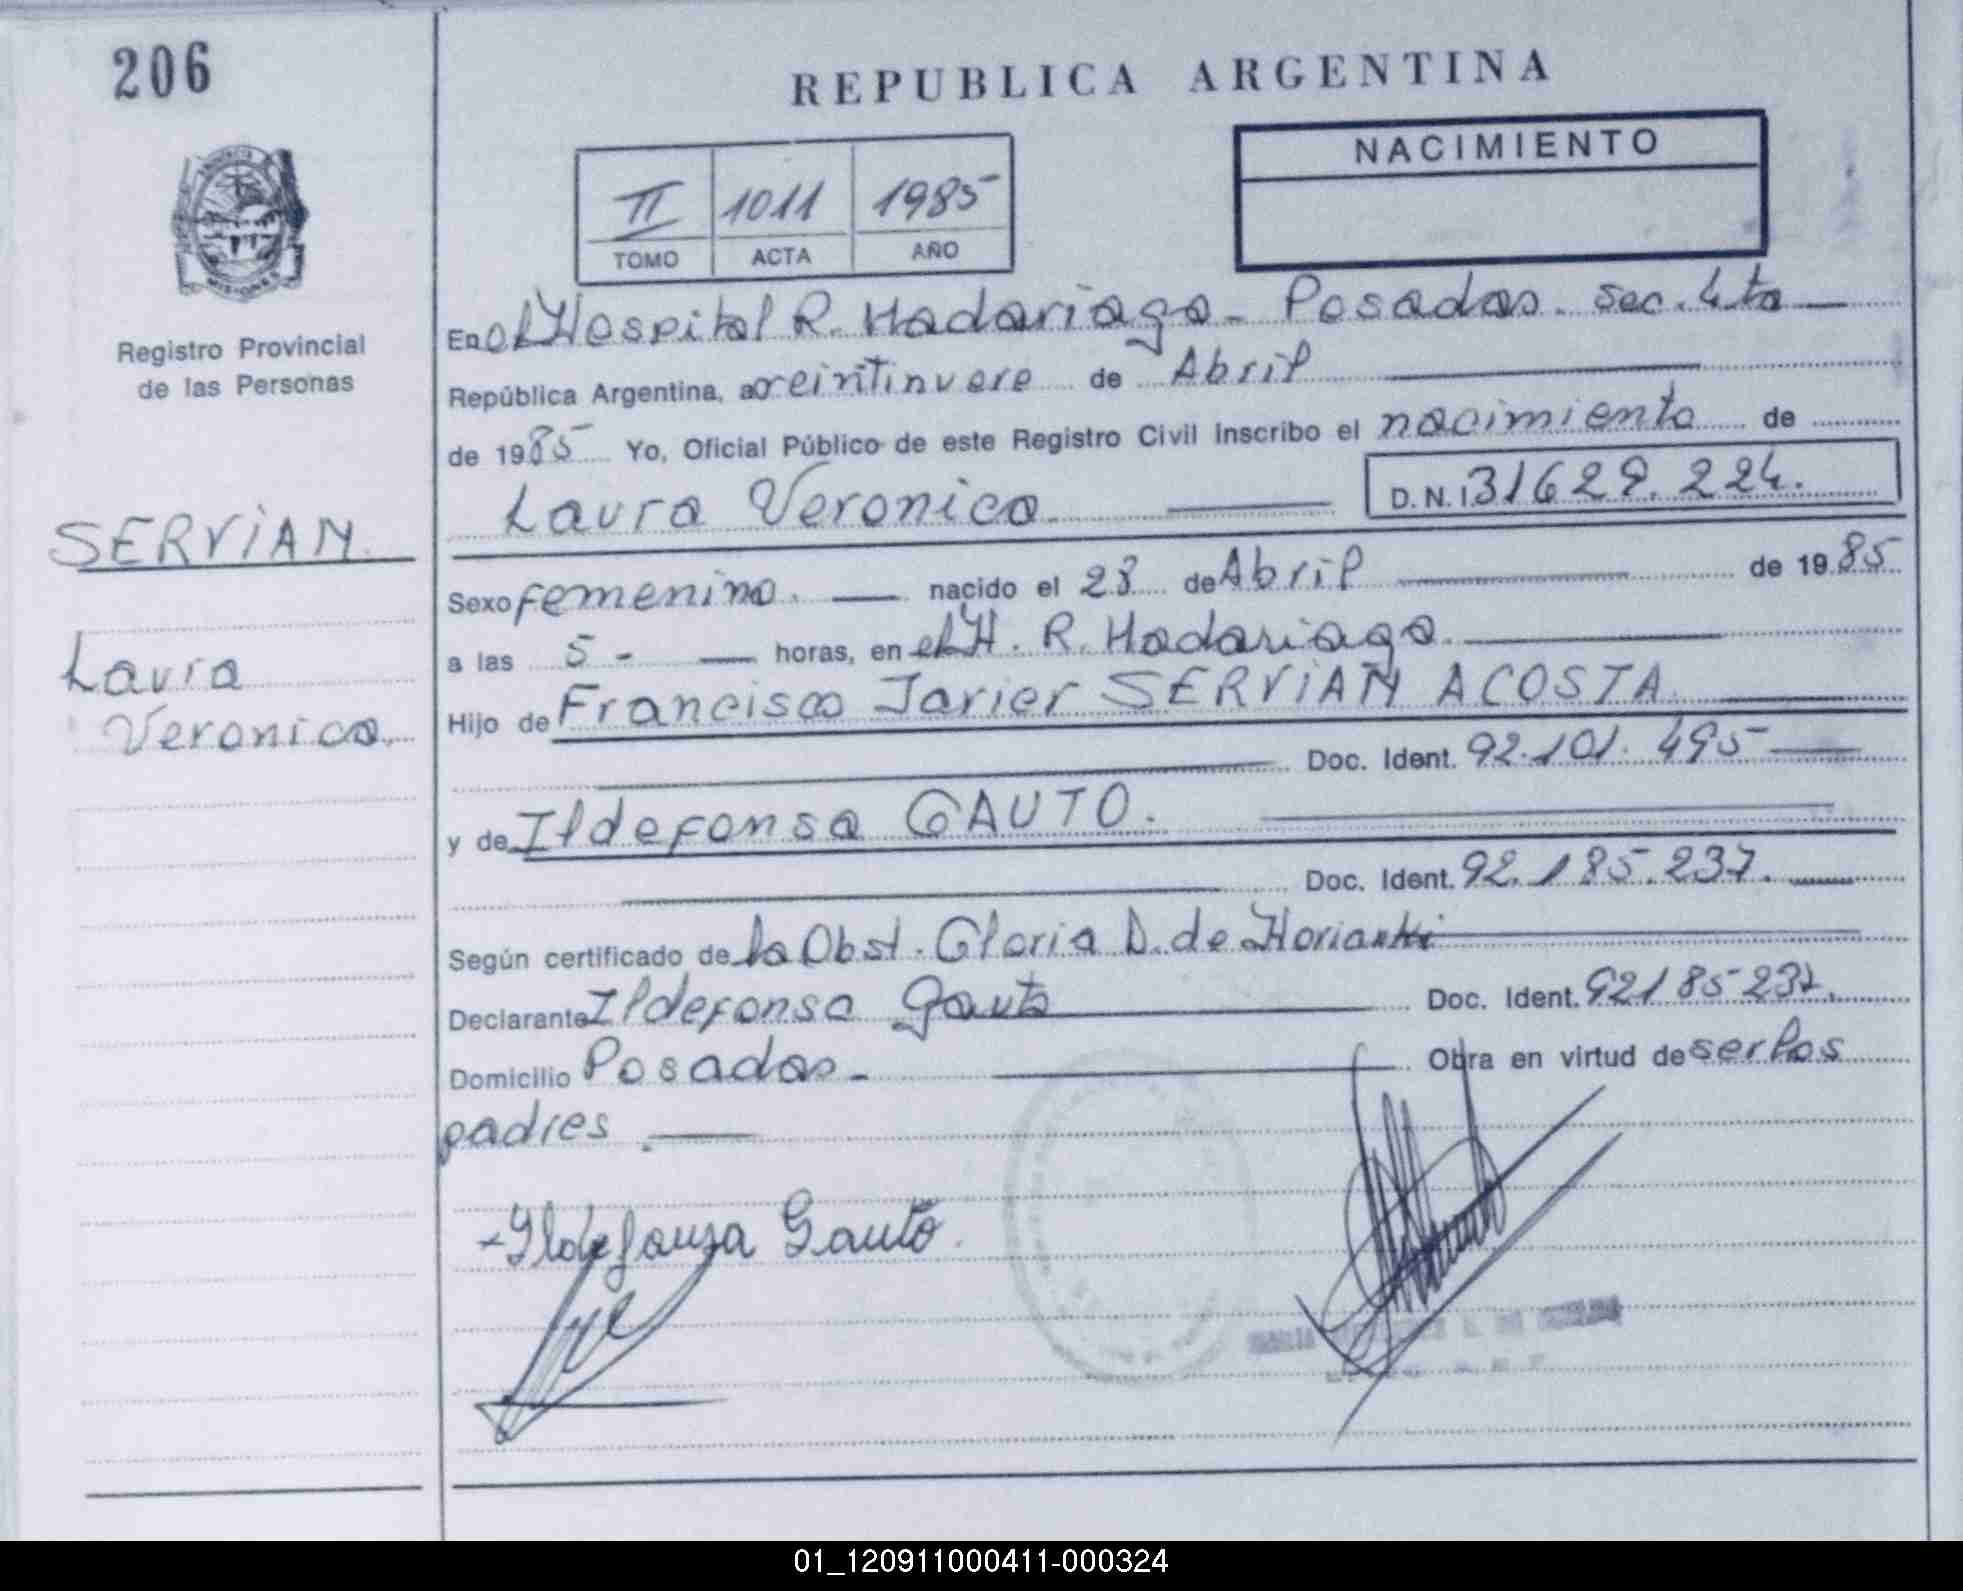 206
REPUBLICA ARGENTINA
NACIMIENTO
II 1011 1985
TOMO ACTA AÑO
Registro Provincial
de las Personas
SERVIAN
Laura
Veronica
En el Hospital R. Madariaga - Posadas. sec. 4ta
República Argentina, a veintinueve de Abril
de 1985 Yo, Oficial Público de este Registro Civil inscribo el nacimiento de
Laura Veronica D.N.I 31629.224.
Sexo femenino. nacido el 28 de Abril de 1985
a las 5 - horas, en el H. R. Madariaga
Hijo de Francisco Javier SERVIAN ACOSTA
Doc. Ident. 92.101.495
y de Ildefonsa GAUTO.
Doc. Ident. 92.185.237.
Según certificado de la Obst. Gloria D. de
Declarante Ildefonsa Gauto Doc. Ident. 92185237.
Domicilio Posadas - Obra en virtud de ser los
padres.
Ildefonza Gauto
01_120911000411-000324